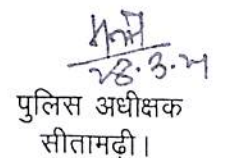 28.3.21
पुलिस अधीक्षक
सीतामढ़ी।